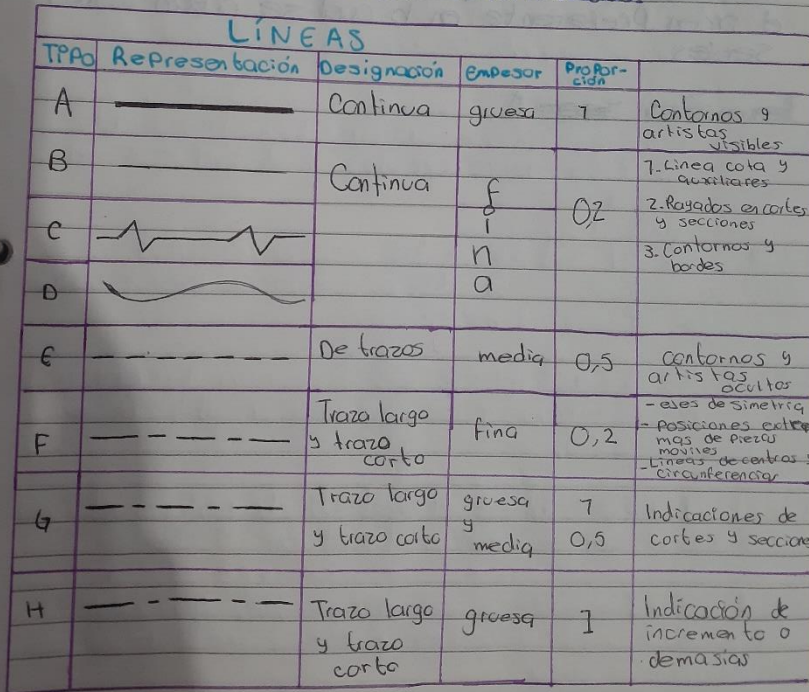 LÍNEAS
TIPO Representación Designación empesor Propor-
ción
A Continua gruesa 1 Contornos y
artistas
visibles
B Continua fina 0,2 1-Linea cota y
auxiliares
C 2. Rayados en cortes
y secciones
3. Contornos y
bordes
D
E De trazos media 0,5 contornos y
artistas
ocultos
F Trazo largo
y trazo
corto
fina 0,2 - eses de simetria
- Posiciones extre
mas de piezas
moviles
- Lineas de centros
circunferencias
G Trazo largo
y trazo corto
gruesa
y
media
1
0,5
Indicaciones de
cortes y seccione
H Trazo largo
y trazo
corto
gruesa 1 Indicación de
incremento o
demasias